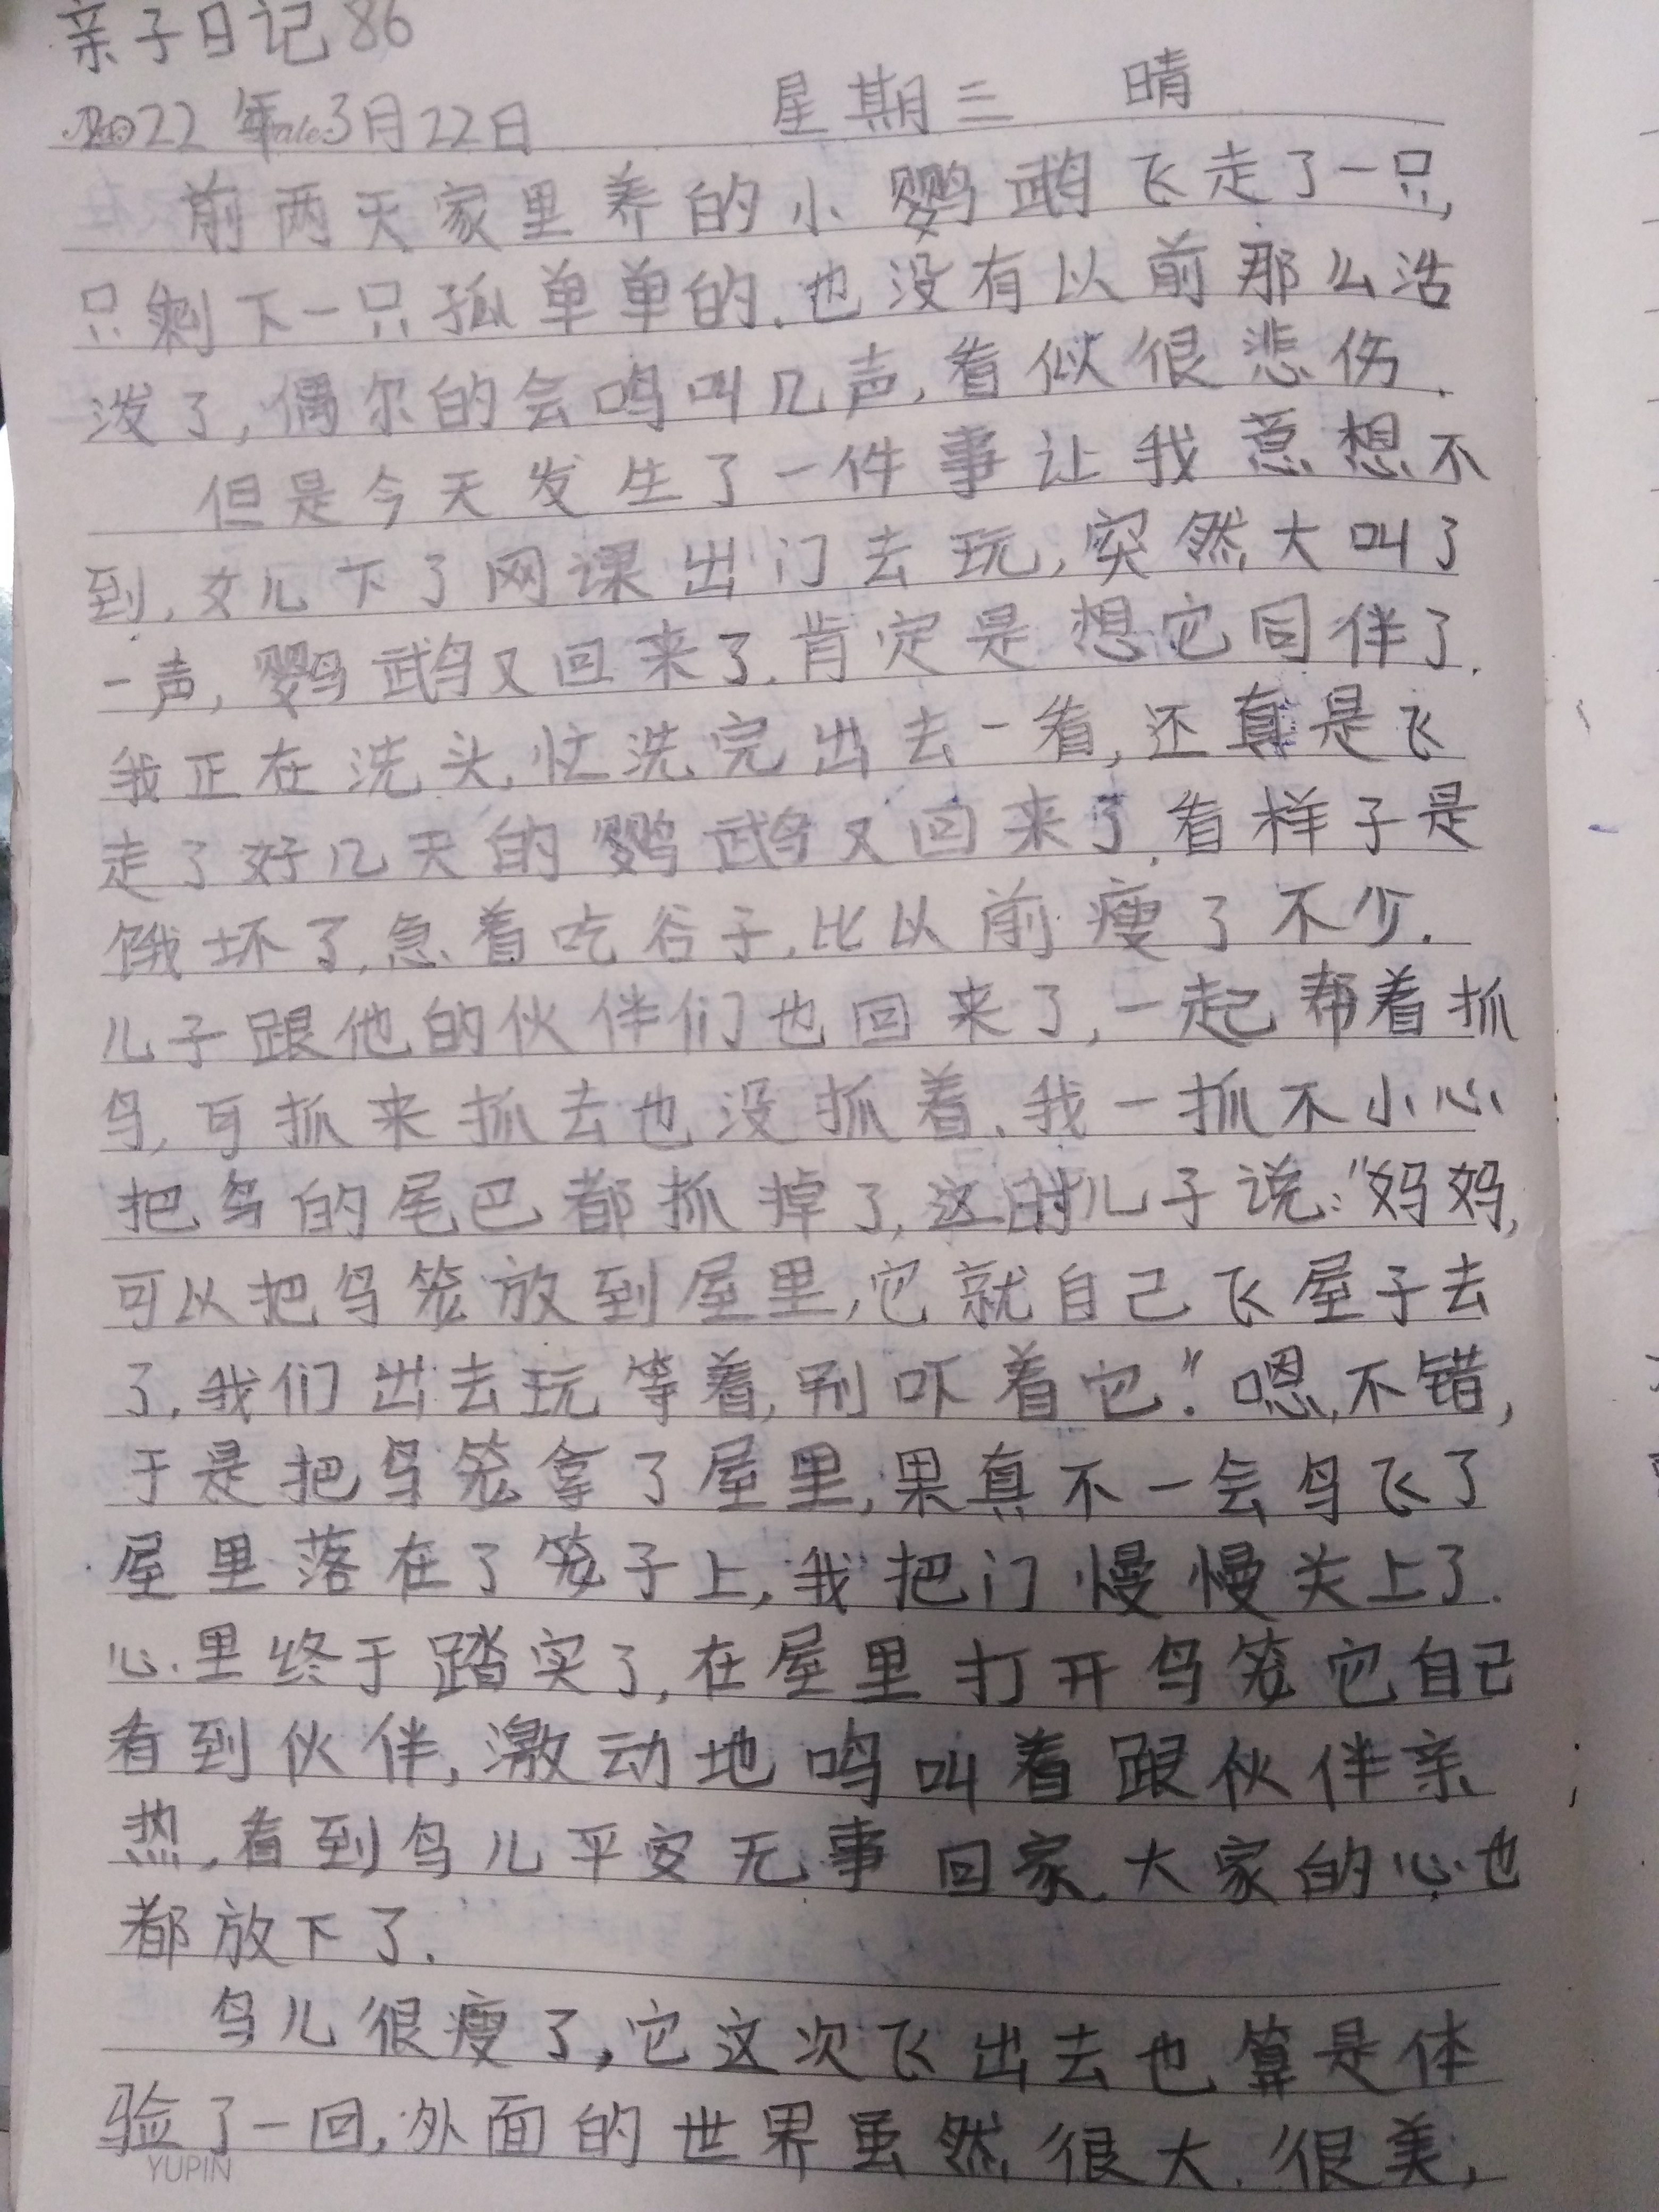 亲子日记86
2022年3月22日 星期三 晴
前两天家里养的小鹦鹉飞走了一只,
只剩下一只孤单单的.也没有以前那么活
泼了,偶尔的会鸣叫几声,看似很悲伤.
但是今天发生了一件事让我意想不
到,女儿下了网课出门去玩,突然大叫了
一声,鹦鹉又回来了.肯定是想它同伴了.
我正在洗头,忙洗完出去一看,还真是飞
走了好几天的鹦鹉又回来了.看样子是
饿坏了,急着吃谷子,比以前瘦了不少.
儿子跟他的伙伴们也回来了,一起帮着抓
鸟,可抓来抓去也没抓着.我一抓不小心
把鸟的尾巴都抓掉了,这时儿子说:"妈妈,
可以把鸟笼放到屋里,它就自己飞屋子去
了,我们出去玩等着,别吓着它."嗯,不错,
于是把鸟笼拿了屋里,果真不一会鸟飞了
屋里落在了笼子上,我把门慢慢关上了.
心里终于踏实了,在屋里打开鸟笼它自己
看到伙伴,激动地鸣叫着跟伙伴亲
热,看到鸟儿平安无事回家.大家的心也
都放下了.
鸟儿很瘦了,它这次飞出去也算是体
验了一回,外面的世界虽然很大.很美,
YUPIN